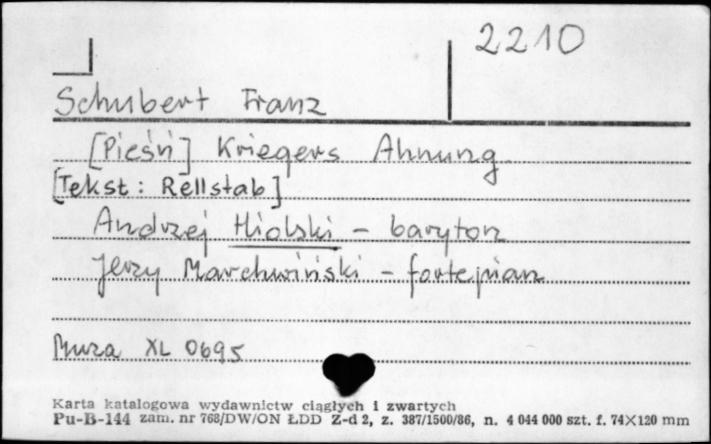 2210
Schubert Franz
[Pieśń] Kriegers Ahnung
[Tekst: Rellstab]
Andrzej Hiolski - baryton
Jerzy Marchwiński - fortepian
Muza XL 0695
Karta katalogowa wydawnictw ciągłych i zwartych
Pu-B-144 zam. nr 768/DW/ON ŁDD Z-d 2, z. 387/1500/86, n. 4 044 000 szt. f. 74X120 mm